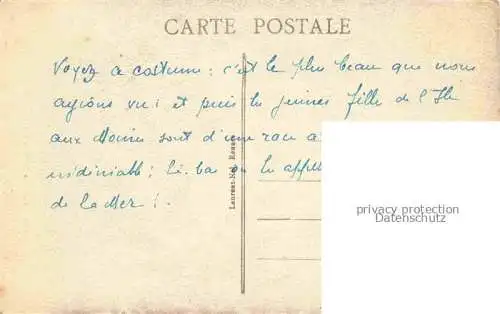 CARTE POSTALE
Voyez ce costume : c'est le plus beau que nous
ayions vu ! et puis les jeunes fille de l'Ile
aux Moines sont d'une race
indéniable ; là-bas on les
de la Mer !
Laurent-Nel Rennes
privacy protection
Datenschutz